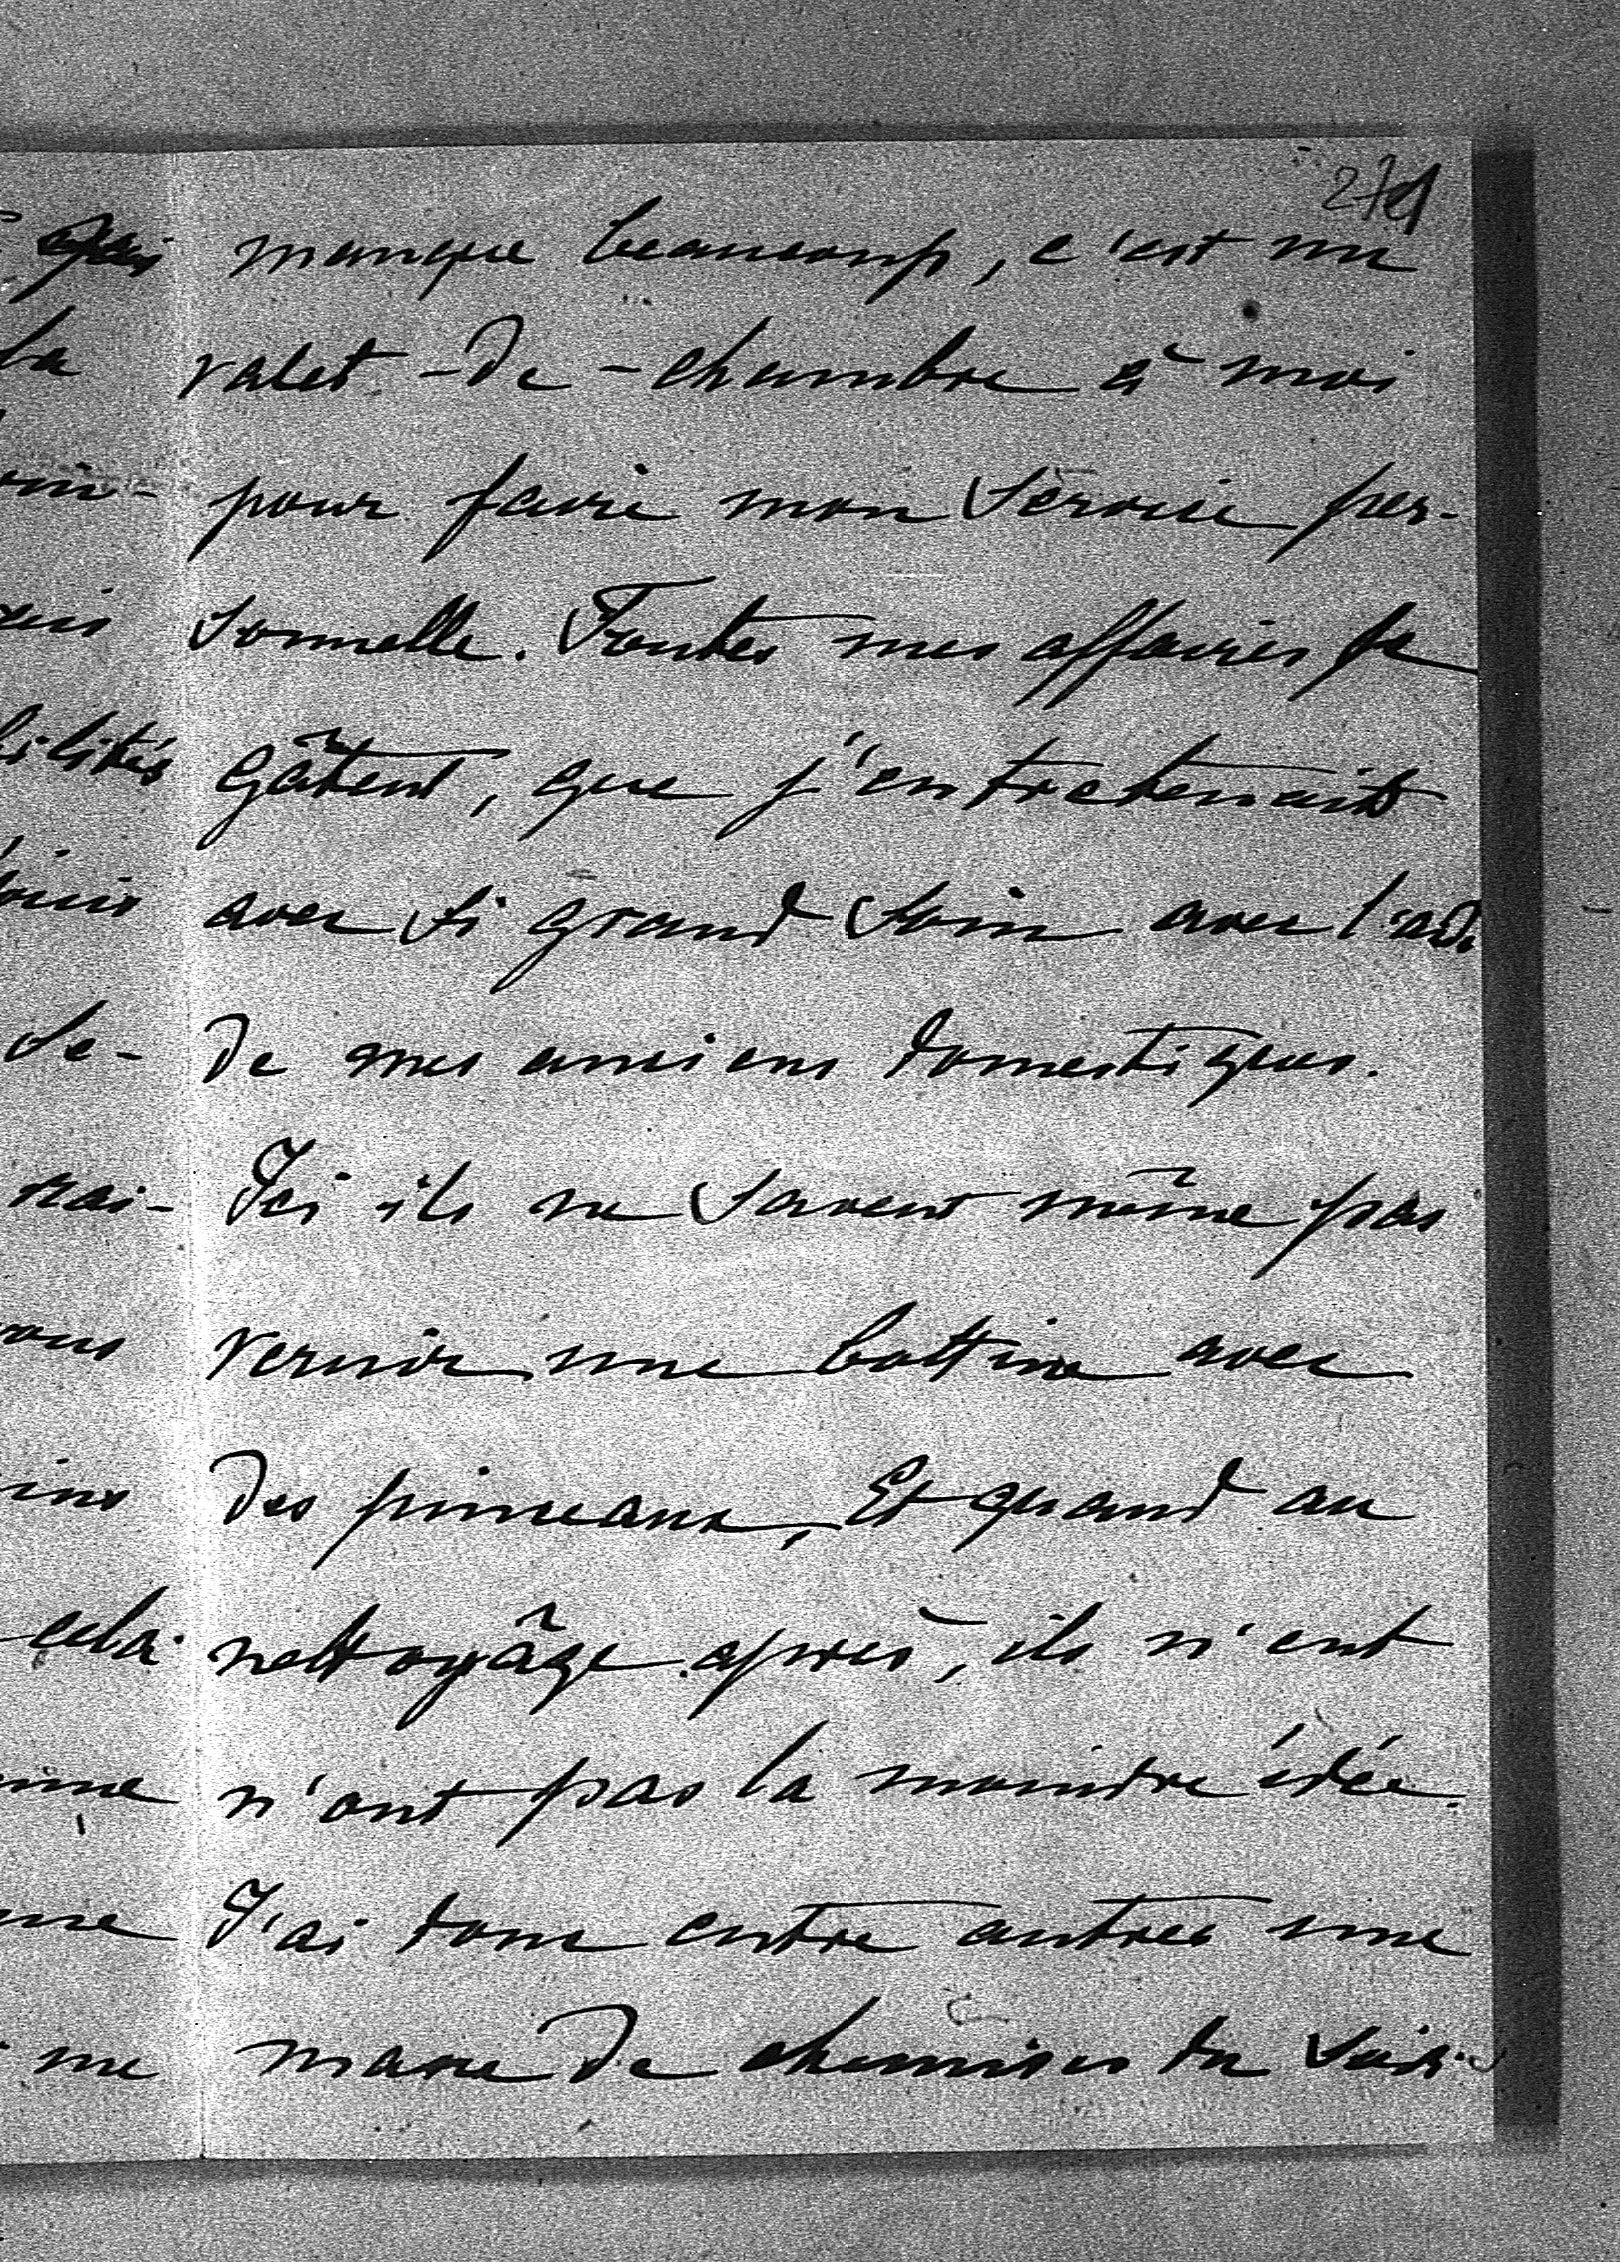 manque beaucoup, c'est un
valet-de-chambre à moi
pour faire mon service per-
sonnelle. Toutes mes affaires se
gâtent, que j'entretenait
avec si grand soin avec l'aide
de mes anciens domestiques.
Ici ils ne savent même pas
vernir une bottine avec
des pinceaux, Et quand au
nettoyâge après, ils n'ent
n'ont pas la moindre idée.
J'ai donc entre autres une
masse de chemises du soir